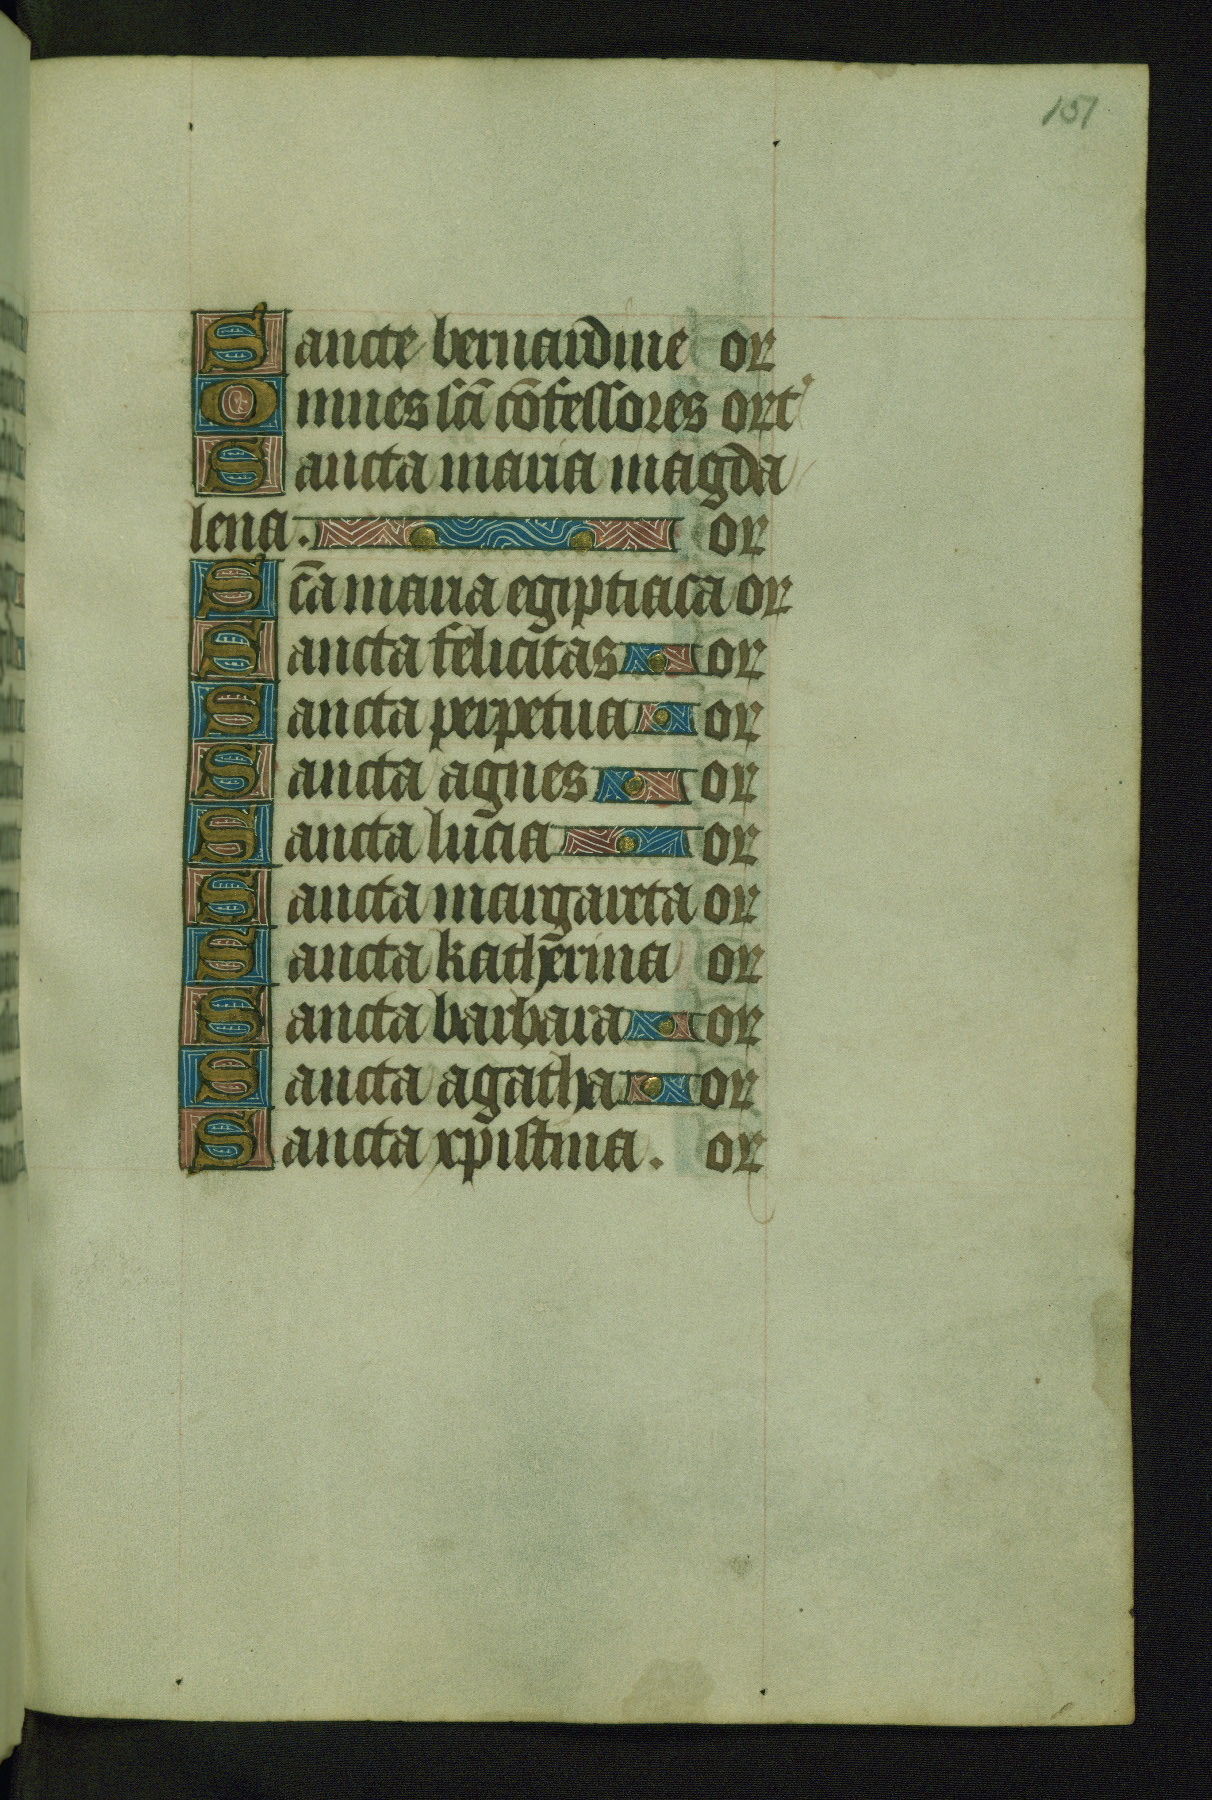 151
Sancte bernardine or
Omnes sc̄i cōfessores ort
Sancta maria magda
lena. or
Sc̄a maria egiptiaca or
Sancta felicitas or
Sancta perpetua or
Sancta agnes or
Sancta lucia or
Sancta margareta or
Sancta katherina or
Sancta barbara or
Sancta agatha or
Sancta xpistina. or